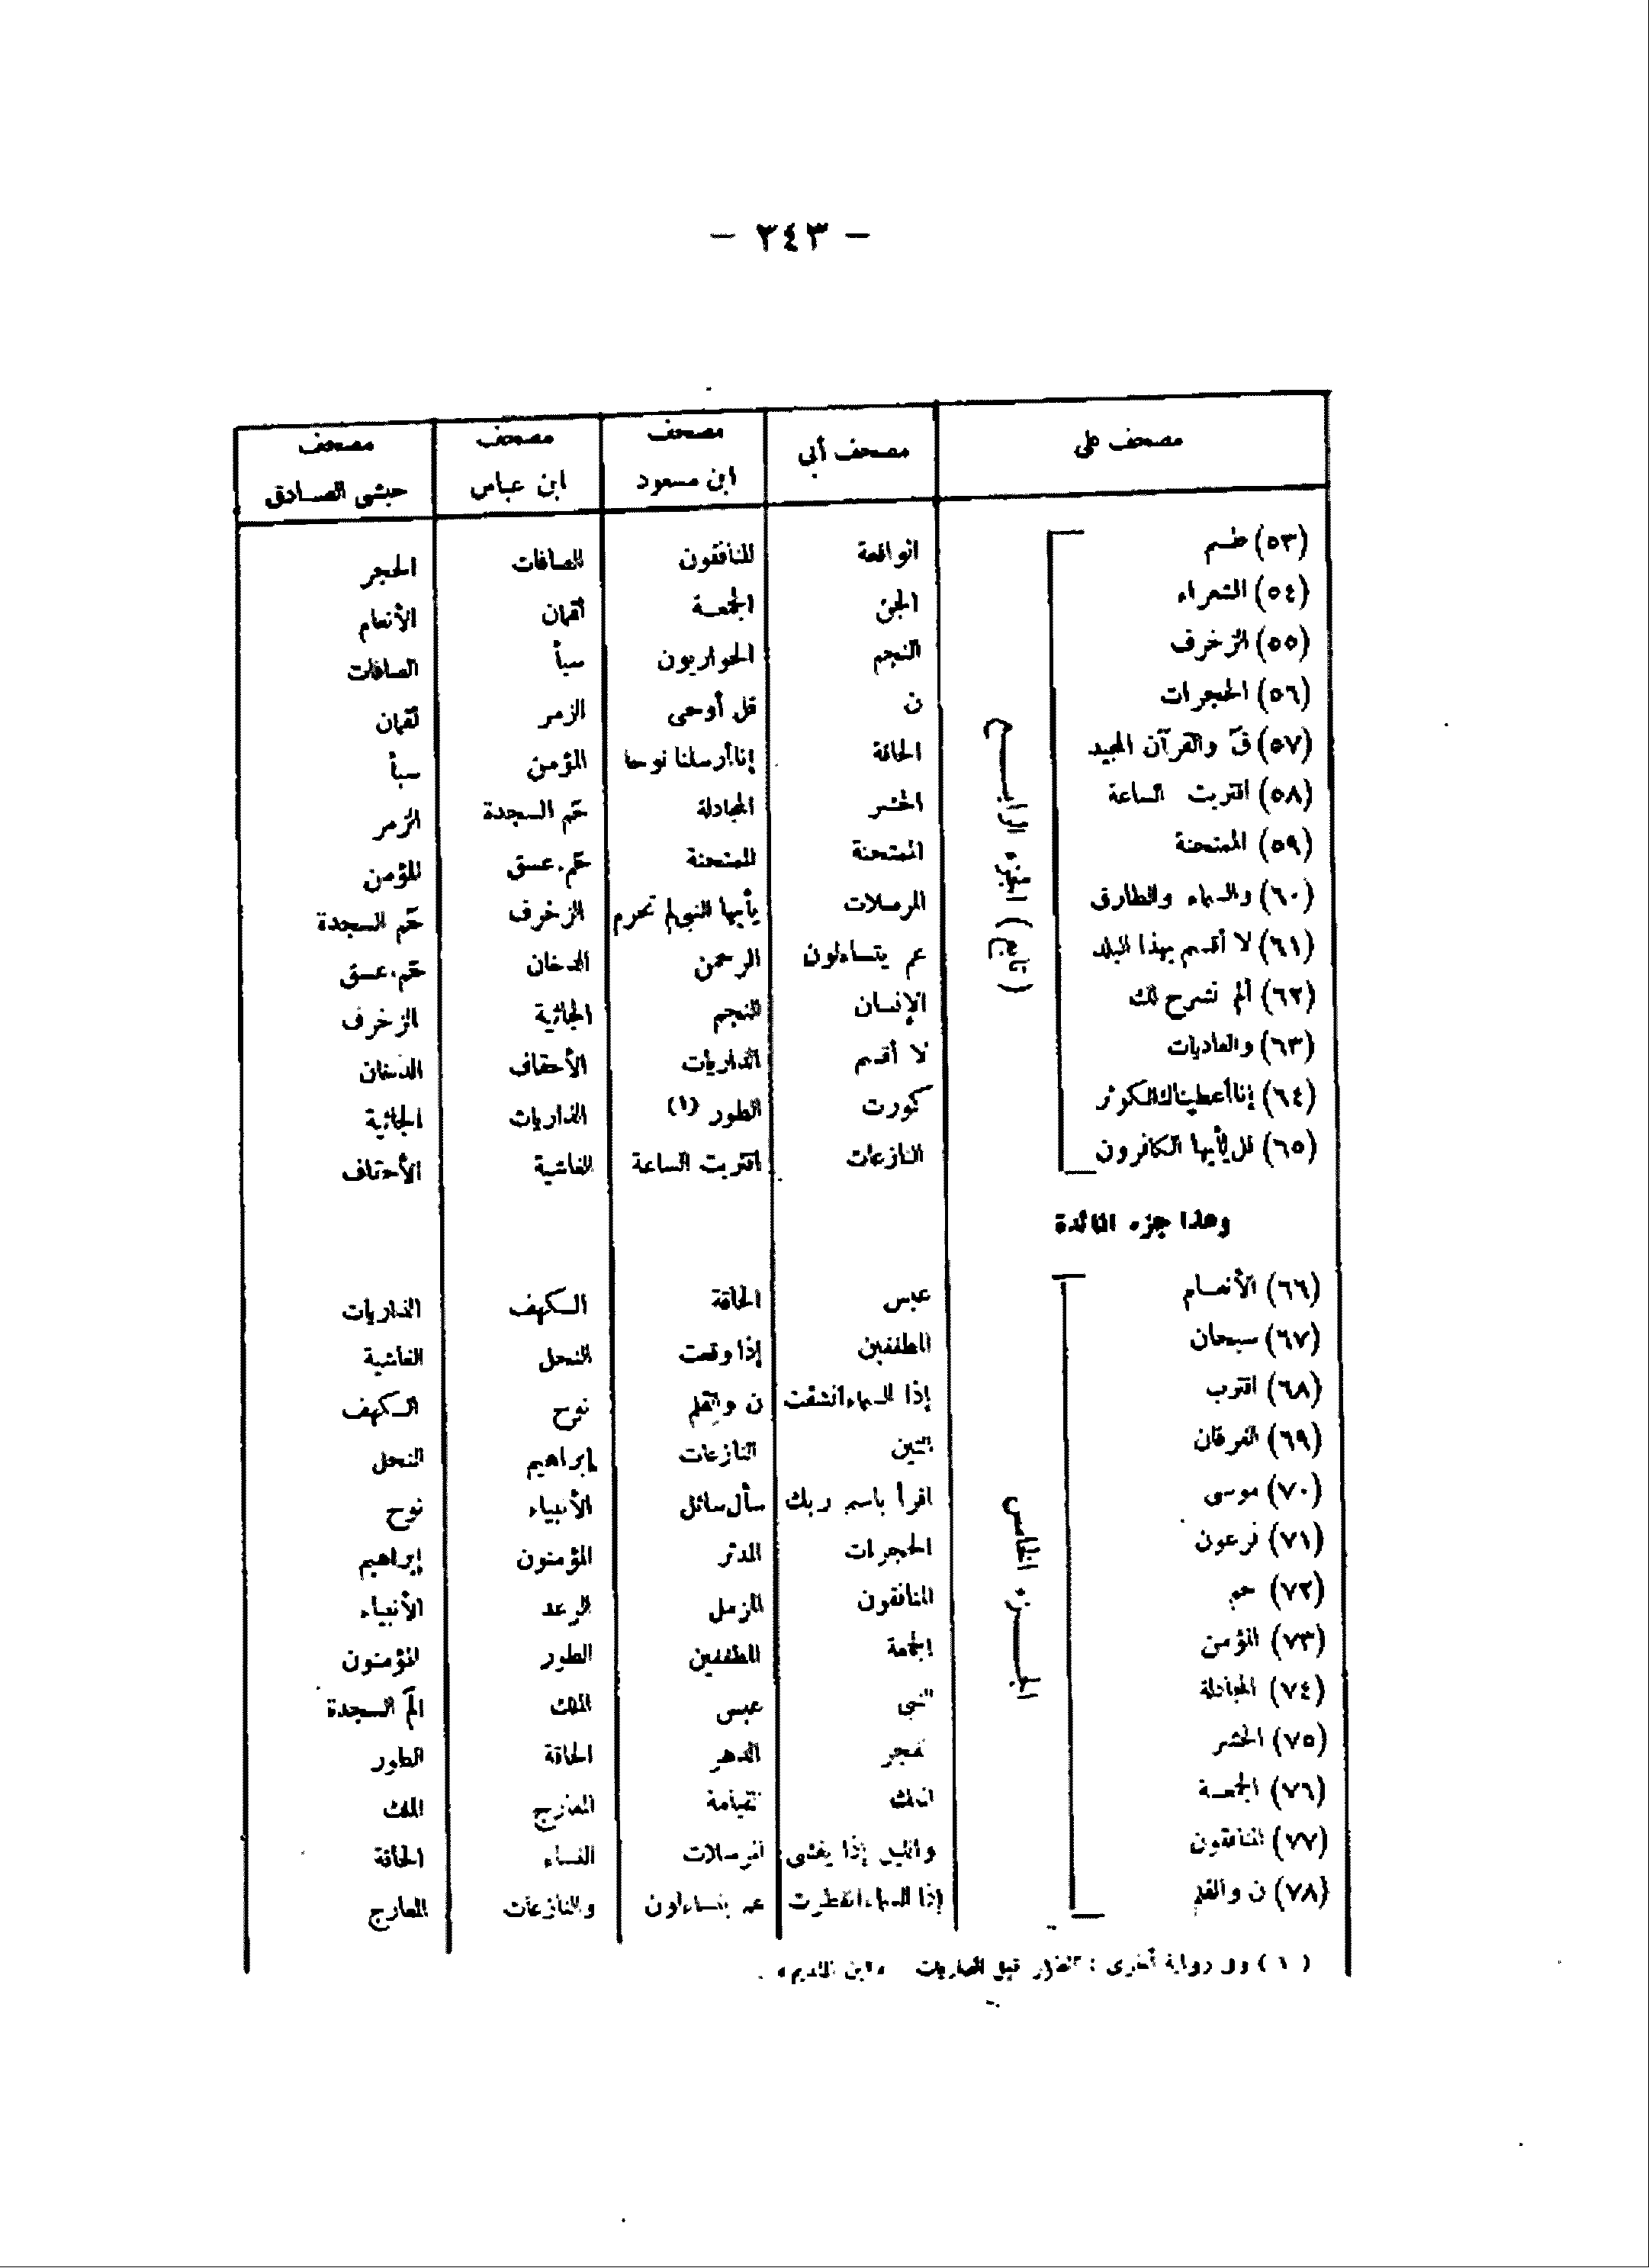 - ٢٤٣ -
مصحف على | مصحف أبى | مصحف ابن مسعود | مصحف ابن عباس | مصحف جعفر الصادق
(تابع) الجزء الرابـــع
(٥٣) طسم | الواقعة | المنافقون | الصافات | الحجر
(٥٤) الشعراء | الجن | الجمعـة | لقمان | الأنعام
(٥٥) الزخرف | النجم | الحواريون | سبأ | الصافات
(٥٦) الحجرات | ن | قل أوحى | الزمر | لقمان
(٥٧) قۤ والقرآن المجيد | الحاقة | إنا أرسلنا نوحا | المؤمن | سبأ
(٥٨) اقتربت الساعة | الحشر | المجادلة | حۤم السجدة | الزمر
(٥٩) الممتحنة | الممتحنة | الممتحنة | حۤم.عسق | المؤمن
(٦٠) والسماء والطارق | المرسلات | يأيها النبى لم تحرم | الزخرف | حۤم السجدة
(٦١) لا أقسم بهذا البلد | عم يتساءلون | الرحمن | الدخان | حۤم.عسق
(٦٢) ألم نشرح لك | الإنسان | النجم | الجاثية | الزخرف
(٦٣) والعاديات | لا أقسم | الذاريات | الأحقاف | الدخان
(٦٤) إنا أعطيناك الكوثر | كورت | الطور (١) | الذاريات | الجاثية
(٦٥) قل يأيها الكافرون | النازعات | اقتربت الساعة | الغاشية | الأحقاف
وهذا جزء المائدة
الجـــزء الخامس
(٦٦) الأنعـام | عبس | الحاقة | الـكهف | الذاريات
(٦٧) سبحان | المطففين | إذا وقعت | النحل | الغاشية
(٦٨) اقترب | إذا السماء انشقت | ن والقلم | نوح | الـكهف
(٦٩) الفرقان | التين | النازعات | إبراهيم | النحل
(٧٠) موسى | اقرأ باسم ربك | سأل سائل | الأنبياء | نوح
(٧١) فرعون | الحجرات | المدثر | المؤمنون | إبراهيم
(٧٢) حم | المنافقون | المزمل | الرعد | الأنبياء
(٧٣) المؤمن | الجمعة | المطففين | الطور | المؤمنون
(٧٤) المجادلة | النبى | عبس | الملك | الۤم السـجدة
(٧٥) الحشر | الفجر | الدهر | الحاقة | الطور
(٧٦) الجمعـة | الملك | القيامة | المعارج | الملك
(٧٧) المنافقون | والليل إذا يغشى | المرسلات | النساء | الحاقة
(٧٨) ن والقلم | إذا السماء انفطرت | عم يتساءلون | والنازعات | المعارج
(١) وفى رواية أخرى : الطور قبل الذاريات «ابن النديم» .